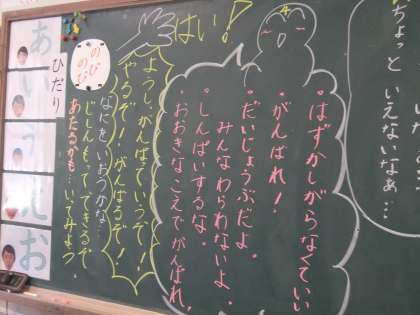 ちょっと
いえないなぁ…
はい!
・はずかしがらなくていい
・がんばれ!
・だいじょうぶだよ。
みんなわらわないよ。
・しんぱいするな。
・おおきなこえでがんばれ。
ようし、がんばっていうぞ!
やるぞ!がんばるぞ!
なにをいおうかな…
じしんもってできるぞ
あたるかも…いってみよう。
のび
のび
ひだり
あ
い
う
え
お